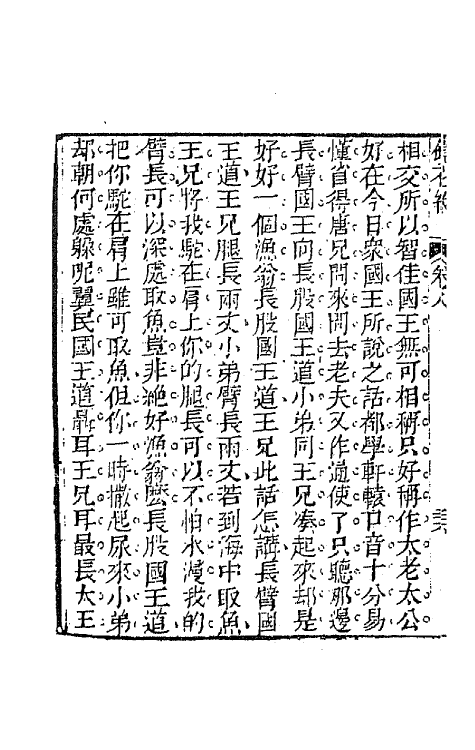 鏡花緣 卷八 三六
相交所以智佳國王無可相稱只好稱作太老太公
好在今日衆國王所說之話都學軒轅口音十分易
懂省得唐兄問來問去老夫又作通使了只聽那邊
長臂國王向長股國王道小弟同王兄湊起來却是
好好一個漁翁長股國王道王兄此話怎講長臂國
王道王兄腿長兩丈小弟臂長兩丈若到海中取魚
王兄將我駝在肩上你的腿長可以不怕水漫我的
臂長可以深處取魚豈非絶好漁翁麽長股國王道
把你駝在肩上雖可取魚但你一時撒起尿來小弟
却朝何處躲呢翼民國王道聶耳王兄耳最長大王